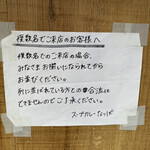 複数名でご来店のお客様へ
複数名でのご来店の場合、
みなさまお揃いになられてから
お並びください。
列に並ばれている方との合流は
できませんのでご了承ください。
スープカレー